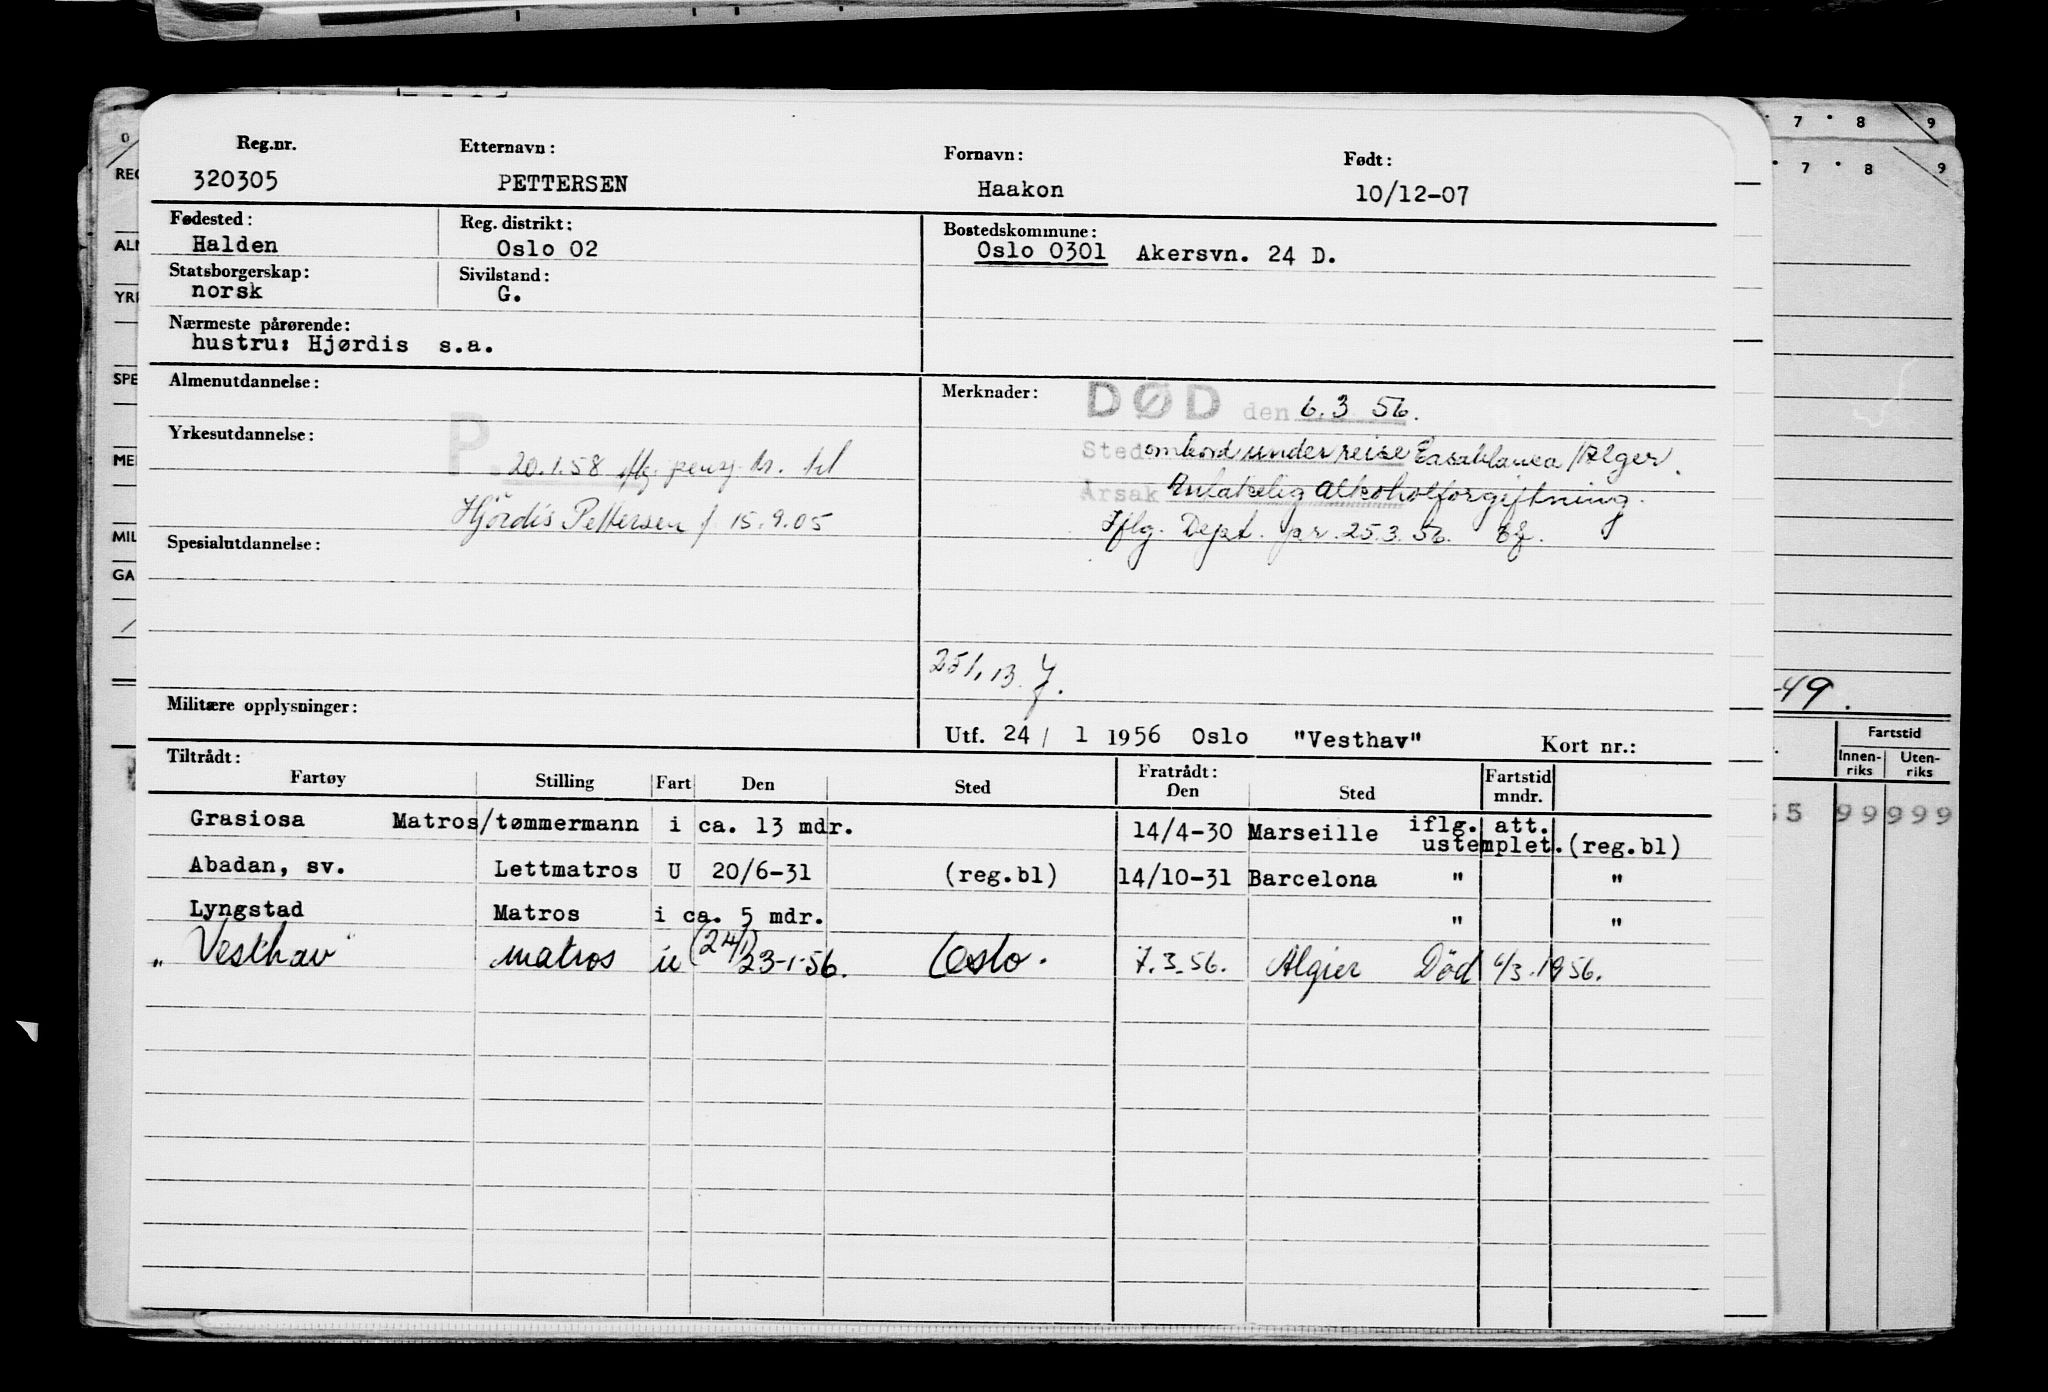 Reg.nr. Etternavn: Fornavn: Født:
320305 PETTERSEN Haakon 10/12-07
Fødested: Reg. distrikt: Bostedskommune:
Halden Oslo 02 Oslo 0301 Akersvn. 24 D.
Statsborgerskap: Sivilstand:
norsk G.
Nærmeste pårørende:
hustru: Hjørdis s.a.
Almenutdannelse:
Merknader: DØD den 6.3 56.
Yrkesutdannelse:
Sted ombord under reise Casablanca / Alger.
P. 20.1.58 til
Årsak Antakelig alkoholforgiftning.
Hjördis Pettersen f. 15.9.05
Iflg. Dept. 25.3.56.
Spesialutdannelse:
Militære opplysninger:
Utf. 24 / 1 1956 Oslo "Vesthav" Kort nr.:
Tiltrådt: Fratrådt: Fartstid
Fartøy Stilling Fart Den Sted Den Sted mndr.
Grasiosa Matros/tømmermann i ca. 13 mdr. 14/4-30 Marseille iflg. att.
ustemplet. (reg.bl)
Abadan, sv. Lettmatros U 20/6-31 (reg.bl) 14/10-31 Barcelona " "
Lyngstad Matros i ca. 5 mdr. " "
"Vesthav" matros u (24/1) 23-1-56. Oslo. 7.3.56. Algier Död 6/3.1956.
0 7 8 9
7 8 9
REG
ALM
YRK
SPE
MIL
GA
-49.
Fartstid
Innen-riks Uten-riks
55 99999